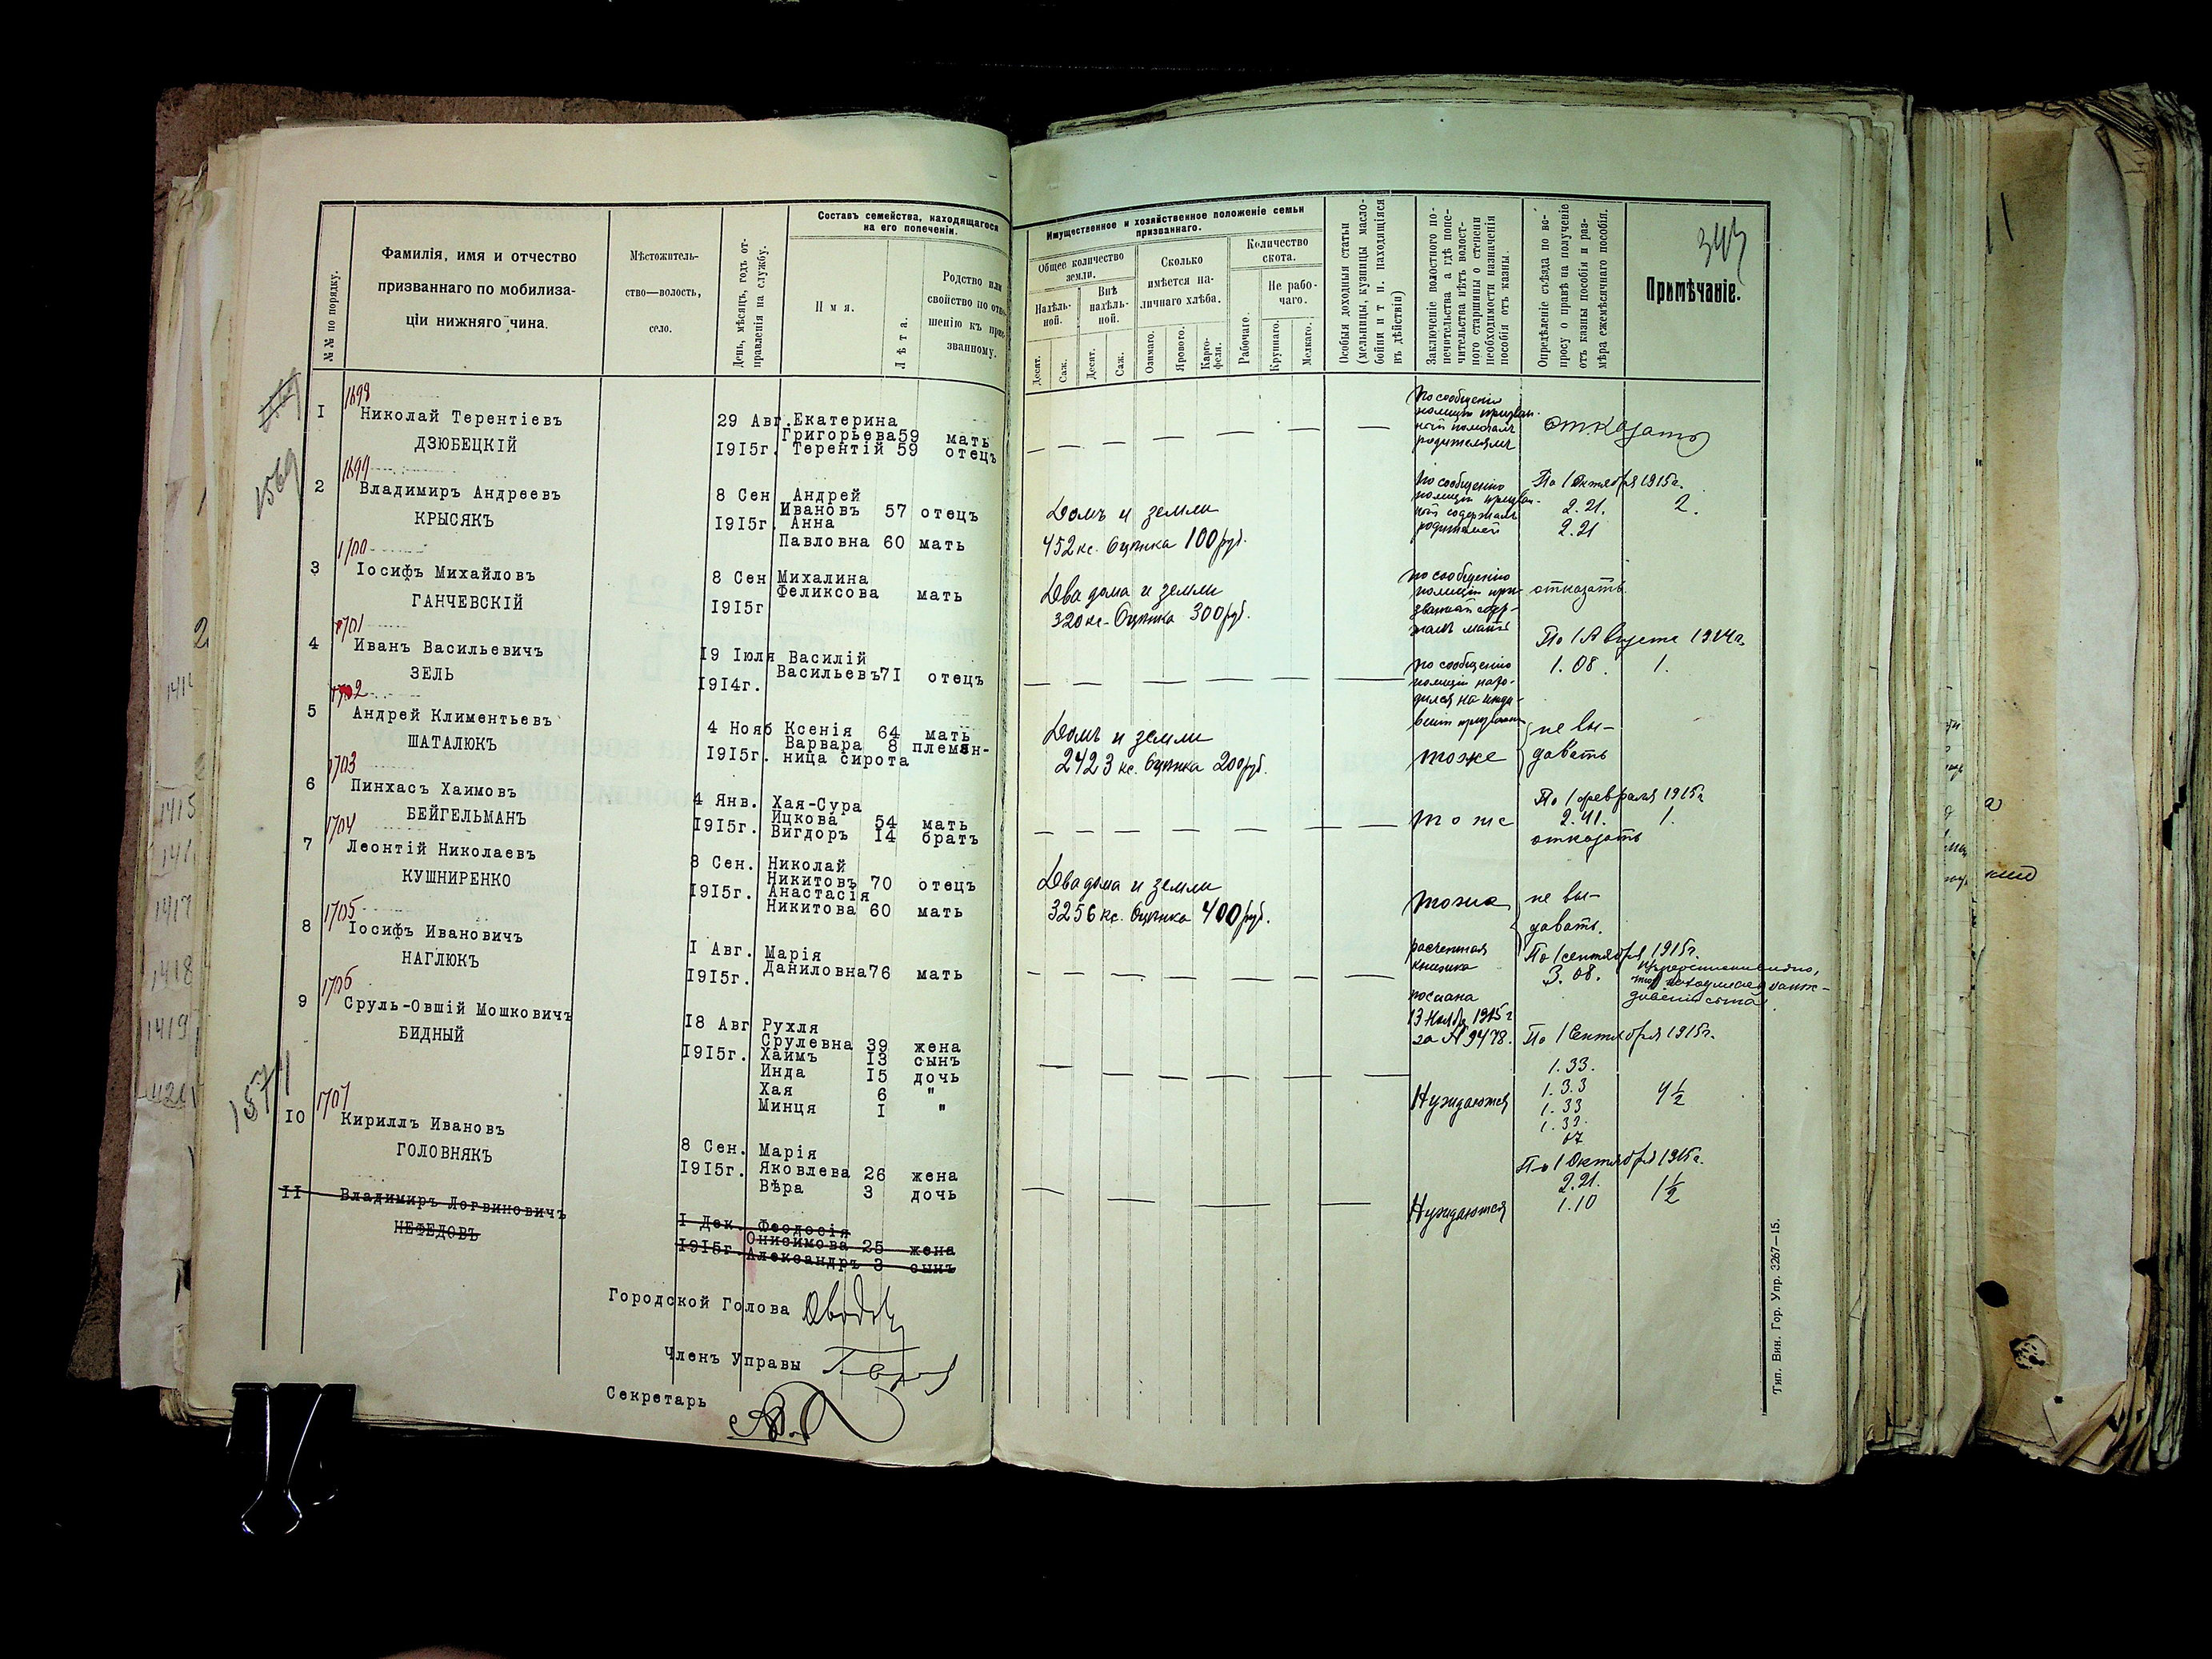 №№ по порядку.
Фамилія, имя и отчество
призваннаго по мобилиза-
ціи нижняго чина.
Мѣстожитель-
ство—волость,
село.
День, мѣсяцъ, годъ от-
правленія на службу.
Составъ семейства, находящагося
на его попеченіи.
Имя.
Лѣта.
Родство или
свойство по отно-
шенію къ при-
званному.
1698
I Николай Терентіевъ
ДЗЮБЕЦКІЙ
29 Авг. Екатерина
Григорьева 59 мать
1915г. Терентій 59 отецъ
1569
1699
2 Владимиръ Андреевъ
КРЫСЯКЪ
8 Сен Андрей
Ивановъ 57 отецъ
1915г. Анна
Павловна 60 мать
1700
3 Іосифъ Михайловъ
ГАНЧЕВСКІЙ
8 Сен Михалина
Феликсова мать
1915г
1701
4 Иванъ Васильевичъ
ЗЕЛЬ
19 Іюля Василій
Васильевъ 71 отецъ
1914г.
1702
5 Андрей Климентьевъ
ШАТАЛЮКЪ
4 Нояб Ксенія 64 мать
Варвара 8 племян-
1915г. ница сирота
1703
6 Пинхасъ Хаимовъ
БЕЙГЕЛЬМАНЪ
4 Янв. Хая-Сура
Ицкова 54 мать
1915г. Вигдоръ 14 братъ
1704
7 Леонтій Николаевъ
КУШНИРЕНКО
8 Сен. Николай
Никитовъ 70 отецъ
1915г. Анастасія
Никитова 60 мать
1705
8 Іосифъ Ивановичъ
НАГЛЮКЪ
I Авг. Марія
Даниловна 76 мать
1915г.
1706
9 Сруль-Овшій Мошковичъ
БИДНЫЙ
18 Авг Рухля
Срулевна 39 жена
1915г. Хаимъ 13 сынъ
Инда 15 дочь
Хая 6 "
Минця I "
1571
1707
10 Кириллъ Ивановъ
ГОЛОВНЯКЪ
8 Сен. Марія
1915г. Яковлева 26 жена
Вѣра 3 дочь
II Владимиръ Логвиновичъ
НЕФЕДОВЪ
I Дек. Феодосія
Онисимова 25 жена
1915г. Александръ 3 сынъ
Городской Голова
Членъ Управы
Секретарь
Имущественное и хозяйственное положеніе семьи
призваннаго.
Общее количество
земли.
Надѣль-
ной.
Внѣ
надѣль-
ной.
Десят.
Саж.
Десят.
Саж.
Сколько
имѣется на-
личнаго хлѣба.
Озимаго.
Яроваго.
Карто-
феля.
Количество
скота.
Рабочаго.
Не рабо-
чаго.
Крупнаго.
Мелкаго.
Особыя доходныя статьи
(мельницы, кузницы масло-
бойни и т п. находящіяся
въ дѣйствіи)
Заключеніе волостного по-
печительства а гдѣ попе-
чительства нѣтъ волост-
ного старшины о степени
необходимости назначенія
пособія отъ казны.
Опредѣленіе съѣзда по во-
просу о правѣ на полученіе
отъ казны пособія и раз-
мѣра ежемѣсячнаго пособія.
Примѣчаніе.
343
По сообщенію
полиціи призван-
ный помогалъ
родителямъ
отказать
Домъ и земли
452 кс. Оцѣнка 100 руб.
По сообщенію
полиціи призван-
ный содержалъ
родителей
По 1 Октября 1915г.
2.21. 2.
2.21
Два дома и земли
320 кс. Оцѣнка 300 руб.
по сообщенію
полиціи при-
званный содер-
жалъ мать
отказать
по сообщенію
полиціи нахо-
дился на ижди-
веніи
По 1 Августа 1914г.
1.08. 1.
Домъ и земли
2423 кс. Оцѣнка 200 руб.
тоже
не вы-
давать
тоже
По 1 февраля 1915г
2.41. 1.
отказать
Два дома и земли
3256 кс. Оцѣнка 400 руб.
тоже
не вы-
давать.
расчетная
книжка
послана
13 Ноября 1915г
за № 9478.
По 1 сентября 1915г.
3.08.
Нуждаются
По 1 Сентября 1915г.
1.33.
1.33
1.33
1.33.
67
4 1/2
Нуждаются
По 1 Октября 1915г.
2.21.
1.10
1 1/2
Тип. Вин. Гор. Упр. 3267—15.
1415
1417
1418
1419